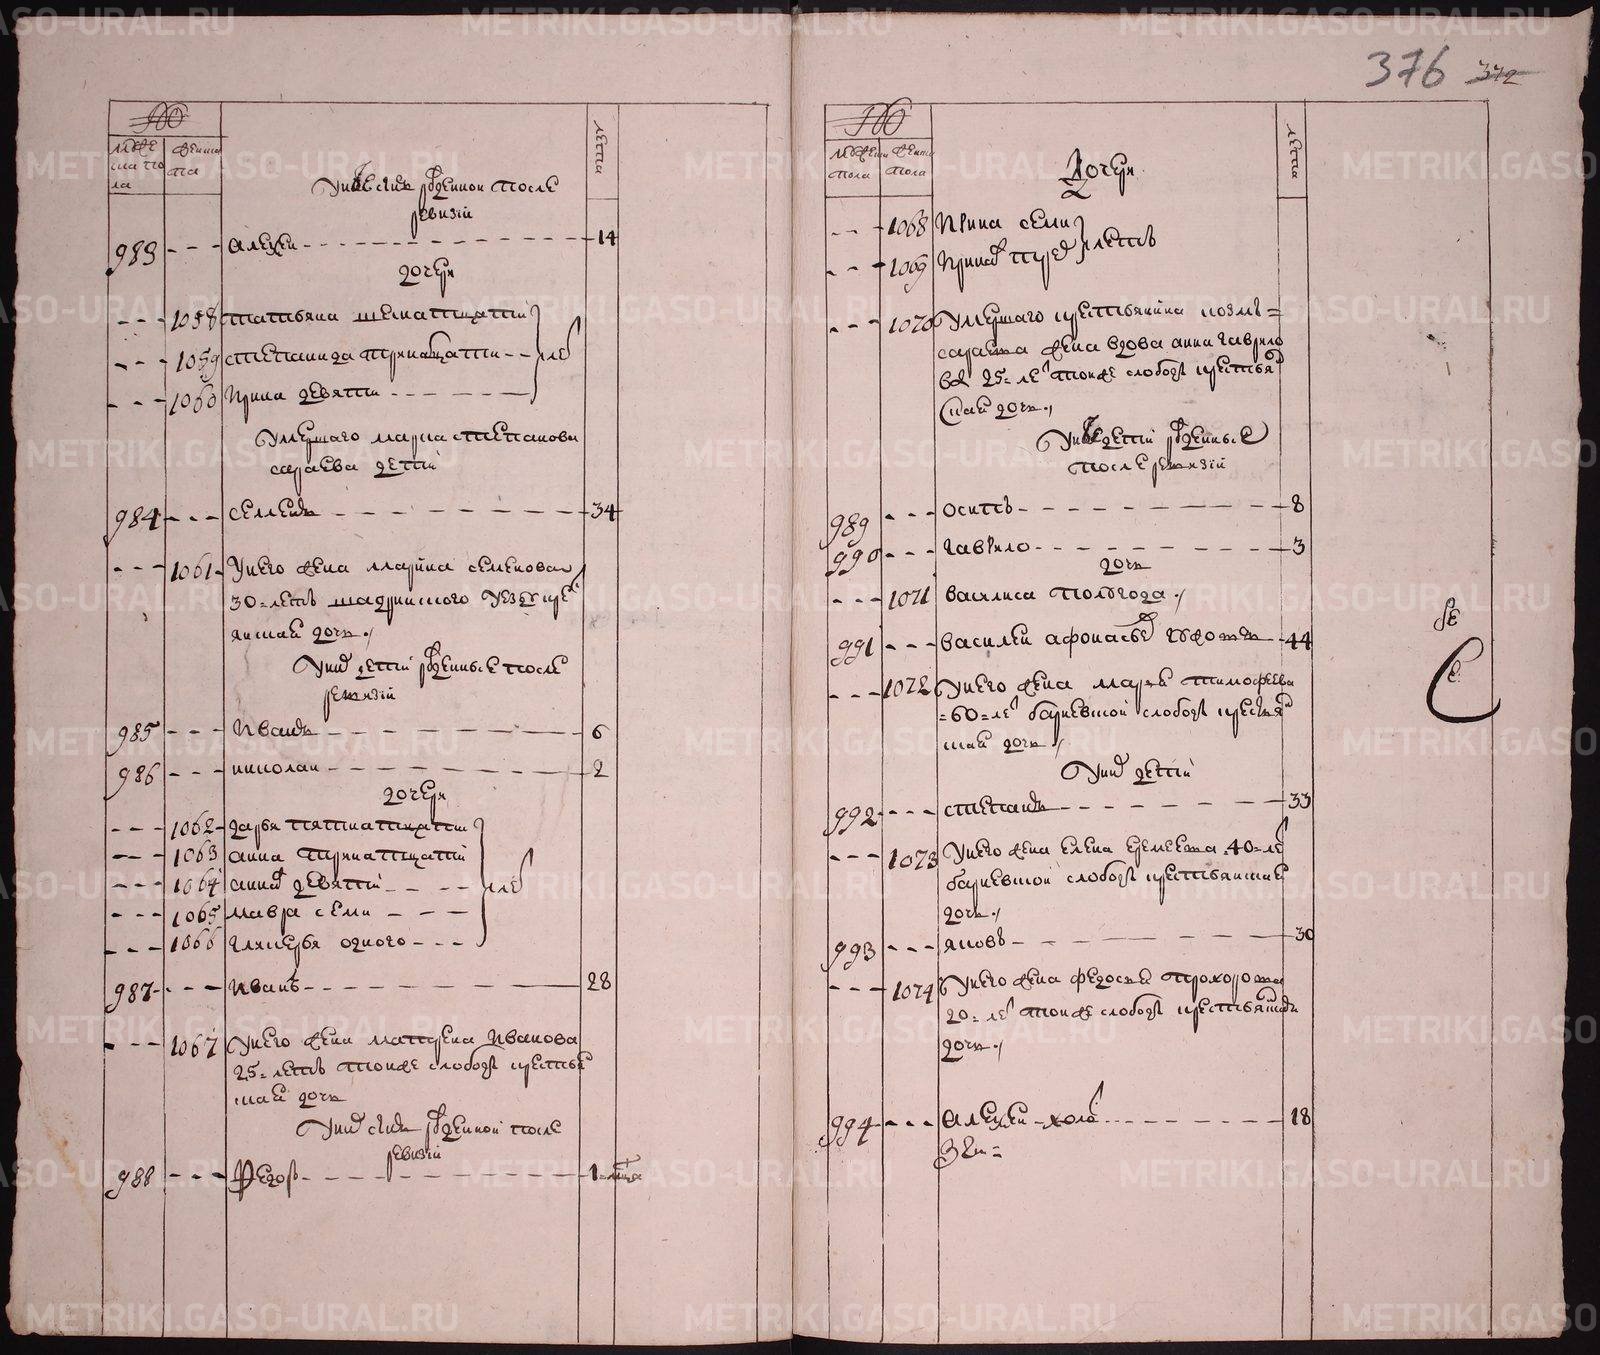 376 372
мужеска пола
женска
лета
у них же сынъ рожденной после
ревизiи
983 алеѯеи 14
дочери
1058 татьяна шеснатцати
1059 степанида тринатцати лет
1060 ирина девяти
умершаго марка степанова
сараева дети
984 семенъ 34
1061 у него жена марина семенова
30 летъ шадринского уезду кре
янская дочь
у них дети рожденные после
ревизiи
985 иванъ 6
986 николаи 2
дочери
1062 дарья пятнатцати
1063 анна тринатцати
1064 анна девяти лет
1065 мавра семи
1066 гликерья одного
987 иванъ 28
1067 у него жена матрена иванова
25 летъ тои же слободы крестья
ская дочь
у них сынъ рожденной после
ревизiи
988 Федоръ 1
мужеска
пола
женска
пола
лета
Дочери
2
1068 ирина семи
летъ
1069 ирина трех
1070 умершаго крестьянина козмы
сараева жена вдова анна гаврило
ва 25 лет тои же слободы крестья
ская дочь
у нее дети рожденные
после ревизiи
989 осипъ 8
990 гаврило 3
дочь
1071 василиса полугода
991 василеи афонасьев 44
1072 у него жена марья тимофеева
60 лет барневской слободы крестья
ская дочь
у них дети
992 степанъ 33
1073 у него жена елена еремеева 40 лет
барневской слободы крестьянская
дочь
993 яковъ 30
1074 у него жена федосья прохорова
20 лет тои же слободы крестьянская
дочь
994 алеѯеи холо 18
METRIKI.GASO-URAL.RU